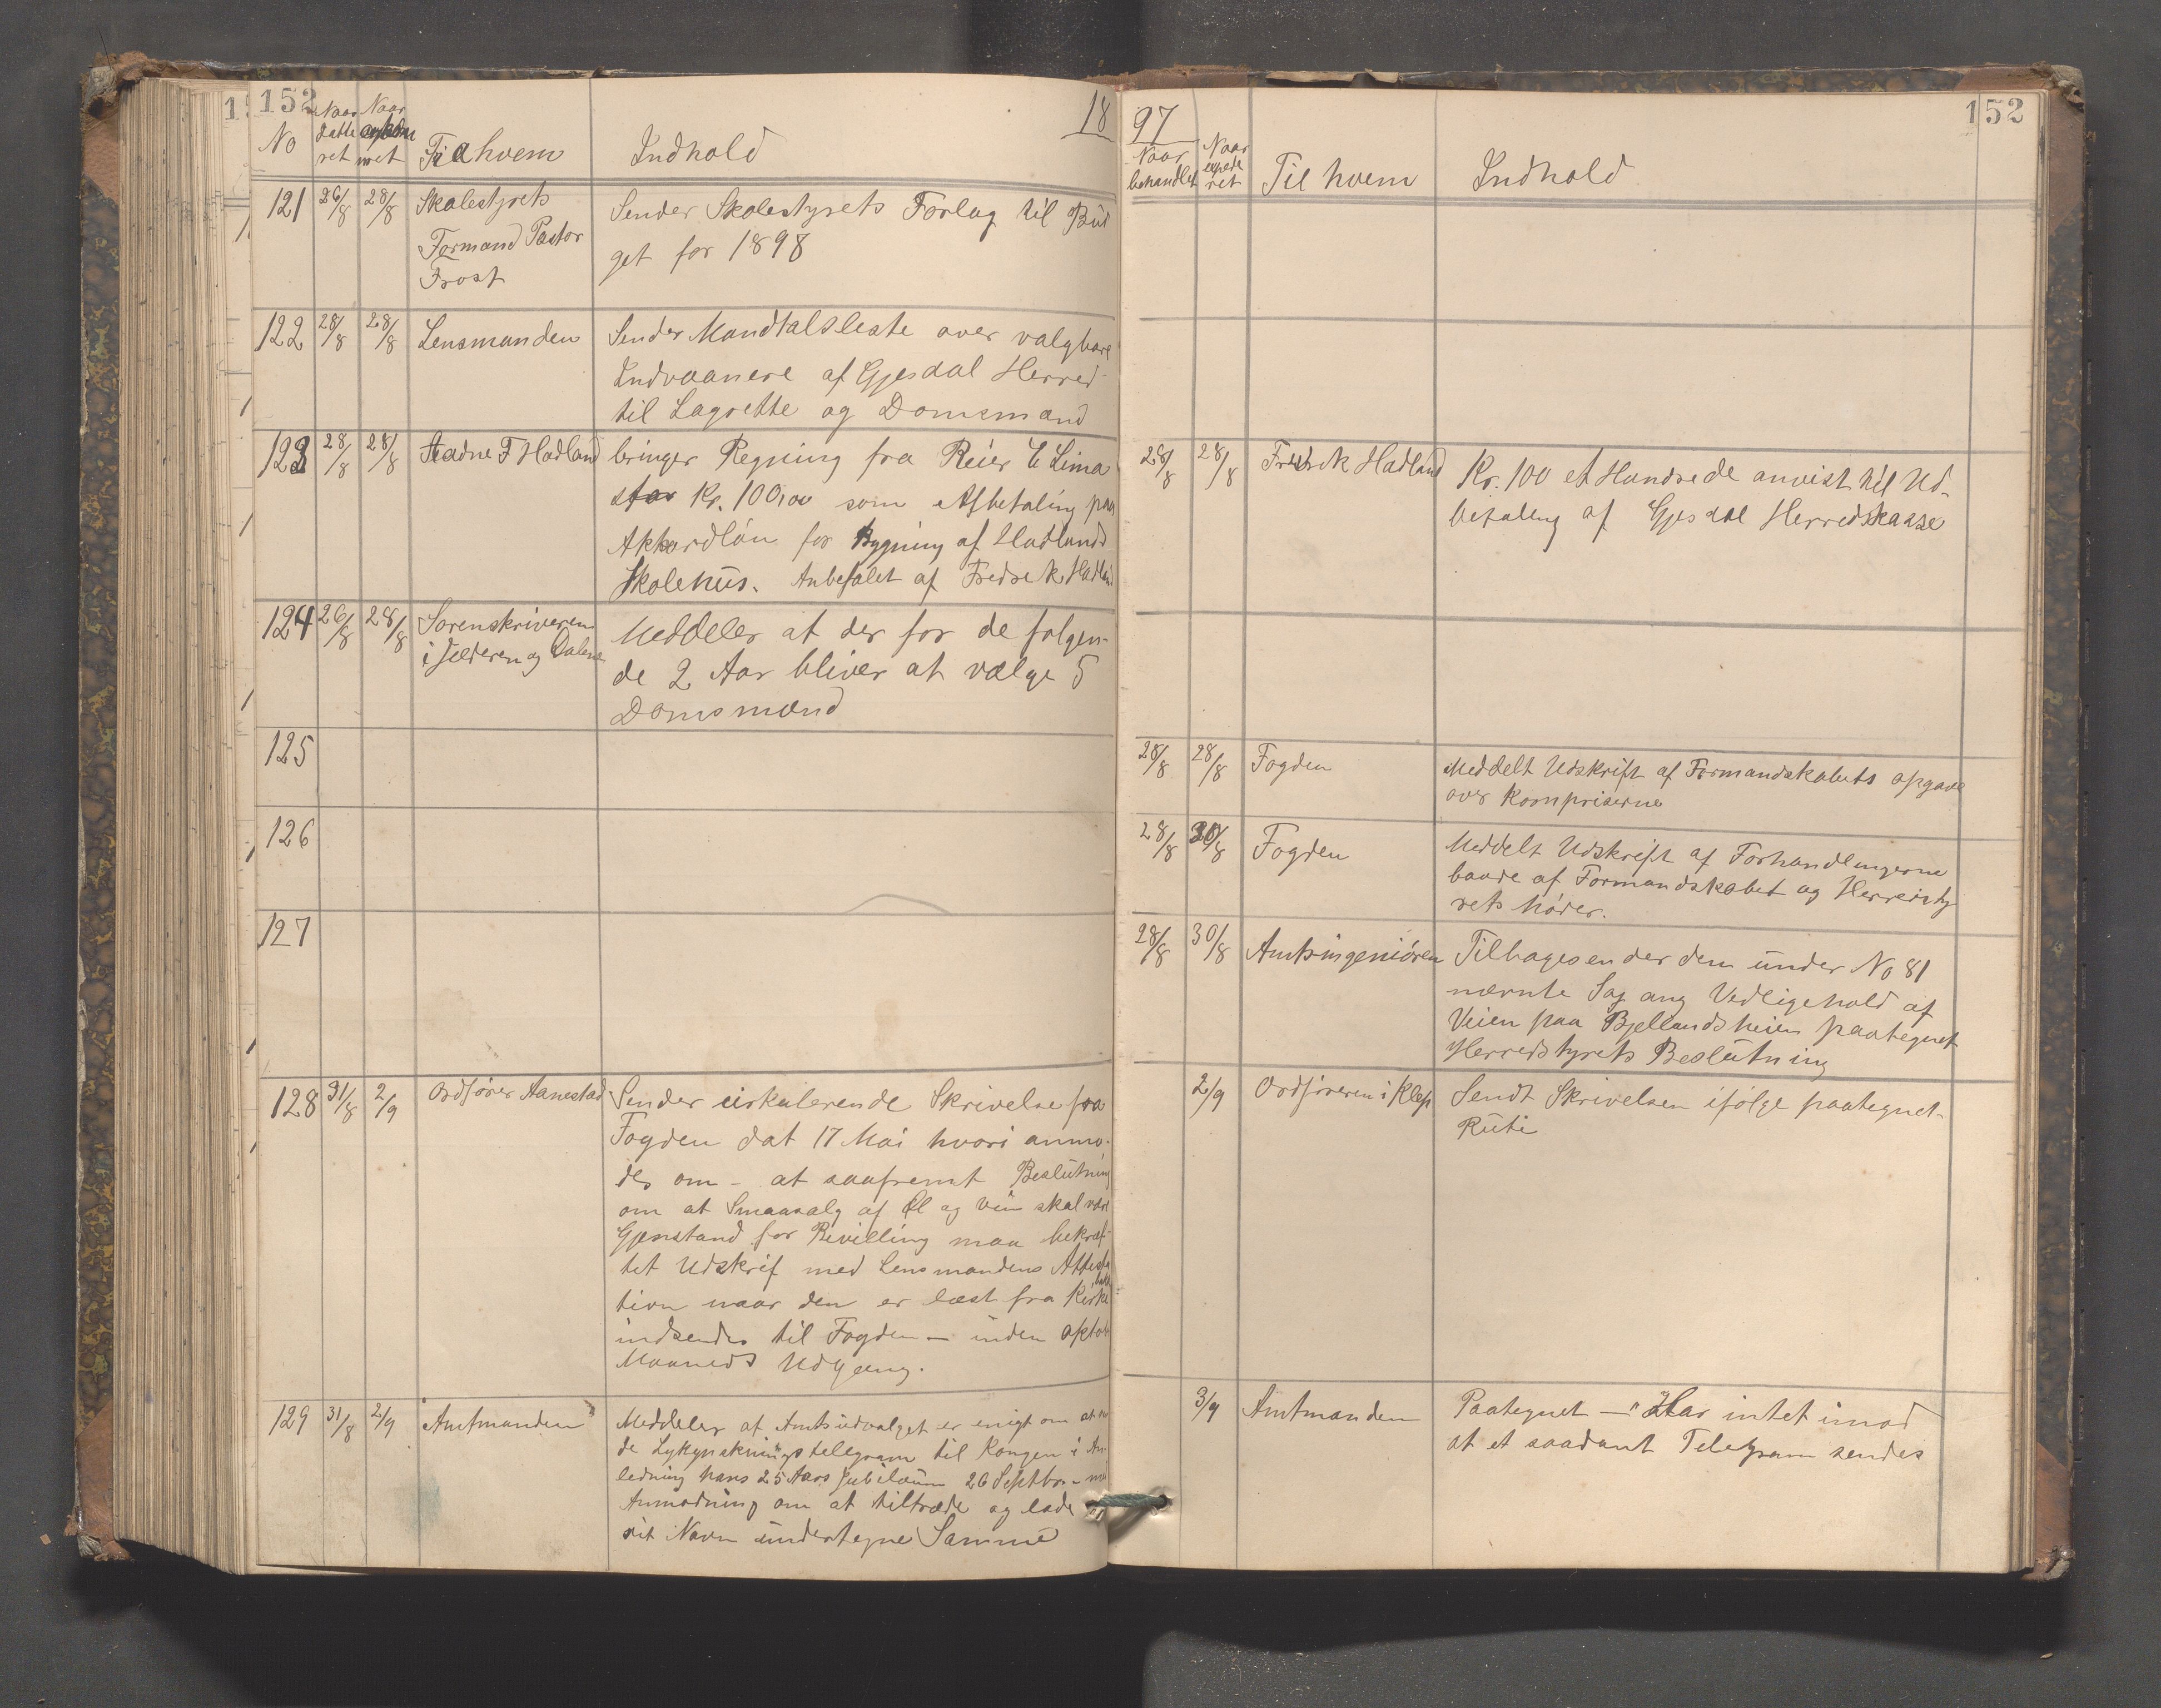 152
18
97
152
No
Naar datte ret
Naar
Fra hvem
Indhold
Naar behandlet
Naar expede ret
Til hvem
Indhold
121 26/8 28/8 Skolestyrets
Formand Pastor
Frost
Sender Skolestyrets Forlag til Bud
get for 1898
122 28/8 28/8 Lensmanden
Sender Mandtalsleste over valgbare
Indvaanere af Gjesdal Herred
til Lagrette og Domsmænd
123 28/8 28/8 Stadne F Hadland
bringer Regning fra Reier E Lima
stor Kr. 100,00 som Afbetaling paa
Akkordløn for Bygning af Hadlands
Skolehus. Anbefalet af Fredrek Hadland
28/8 28/8 Fredrek Hadland
Kr. 100 et Hundrede anvist til Ud-
betaling af Gjesdal Herredskasse
124 26/8 28/8 Sorenskriveren
i Jæderen og Dalene
Meddeler at der for de følgen-
de 2 Aar bliver at vælge 5
Domsmænd
125
28/8 28/8 Fogden
Meddelt Udskrift af Formandskabets opgave
over Kornpriserne
126
28/8 30/8 Fogden
Meddelt Udskrift af Forhandlingerne
baade af Formandskabet og Herredsty
rets Møder.
127
28/8 30/8 Amtsingeniøren
Tilbagesender den under No 81
nævnte Sag ang Vedligehold af
Veien paa Bjellandsheien paategnet
Herredstyrets Beslutning
128 31/8 2/9 Ordfører Aanestad
Sender cirkulerende Skrivelse fra
Fogden dat 17 Mai hvori anmo-
des om - at saafremt Beslutning
om at Smaasalg af Øl og Vin skal være
Gjenstand for Bevilling maa bekræf-
tet Udskrif med Lensmandens Attesta
tion naar den er læst fra Kirke
bakk
indsendes til Fogden - inden Oktob
Maaneds Udgang.
2/9 Ordføreren i Klep
Sendt Skrivelsen ifølge paategnet
Rute
129 31/8 2/9 Amtmanden
Meddeler at Amtsudvalget er enigt om at
de Lykynsknings telegram til Kongen i An-
ledning hans 25 Aars Jubilæum 26 Septbr - med
Anmodning om at tiltræde og lade
sit Navn undertegne Samme
3/9 Amtmanden
Paategnet - "Har intet imod
at et saadant Telegram sendes